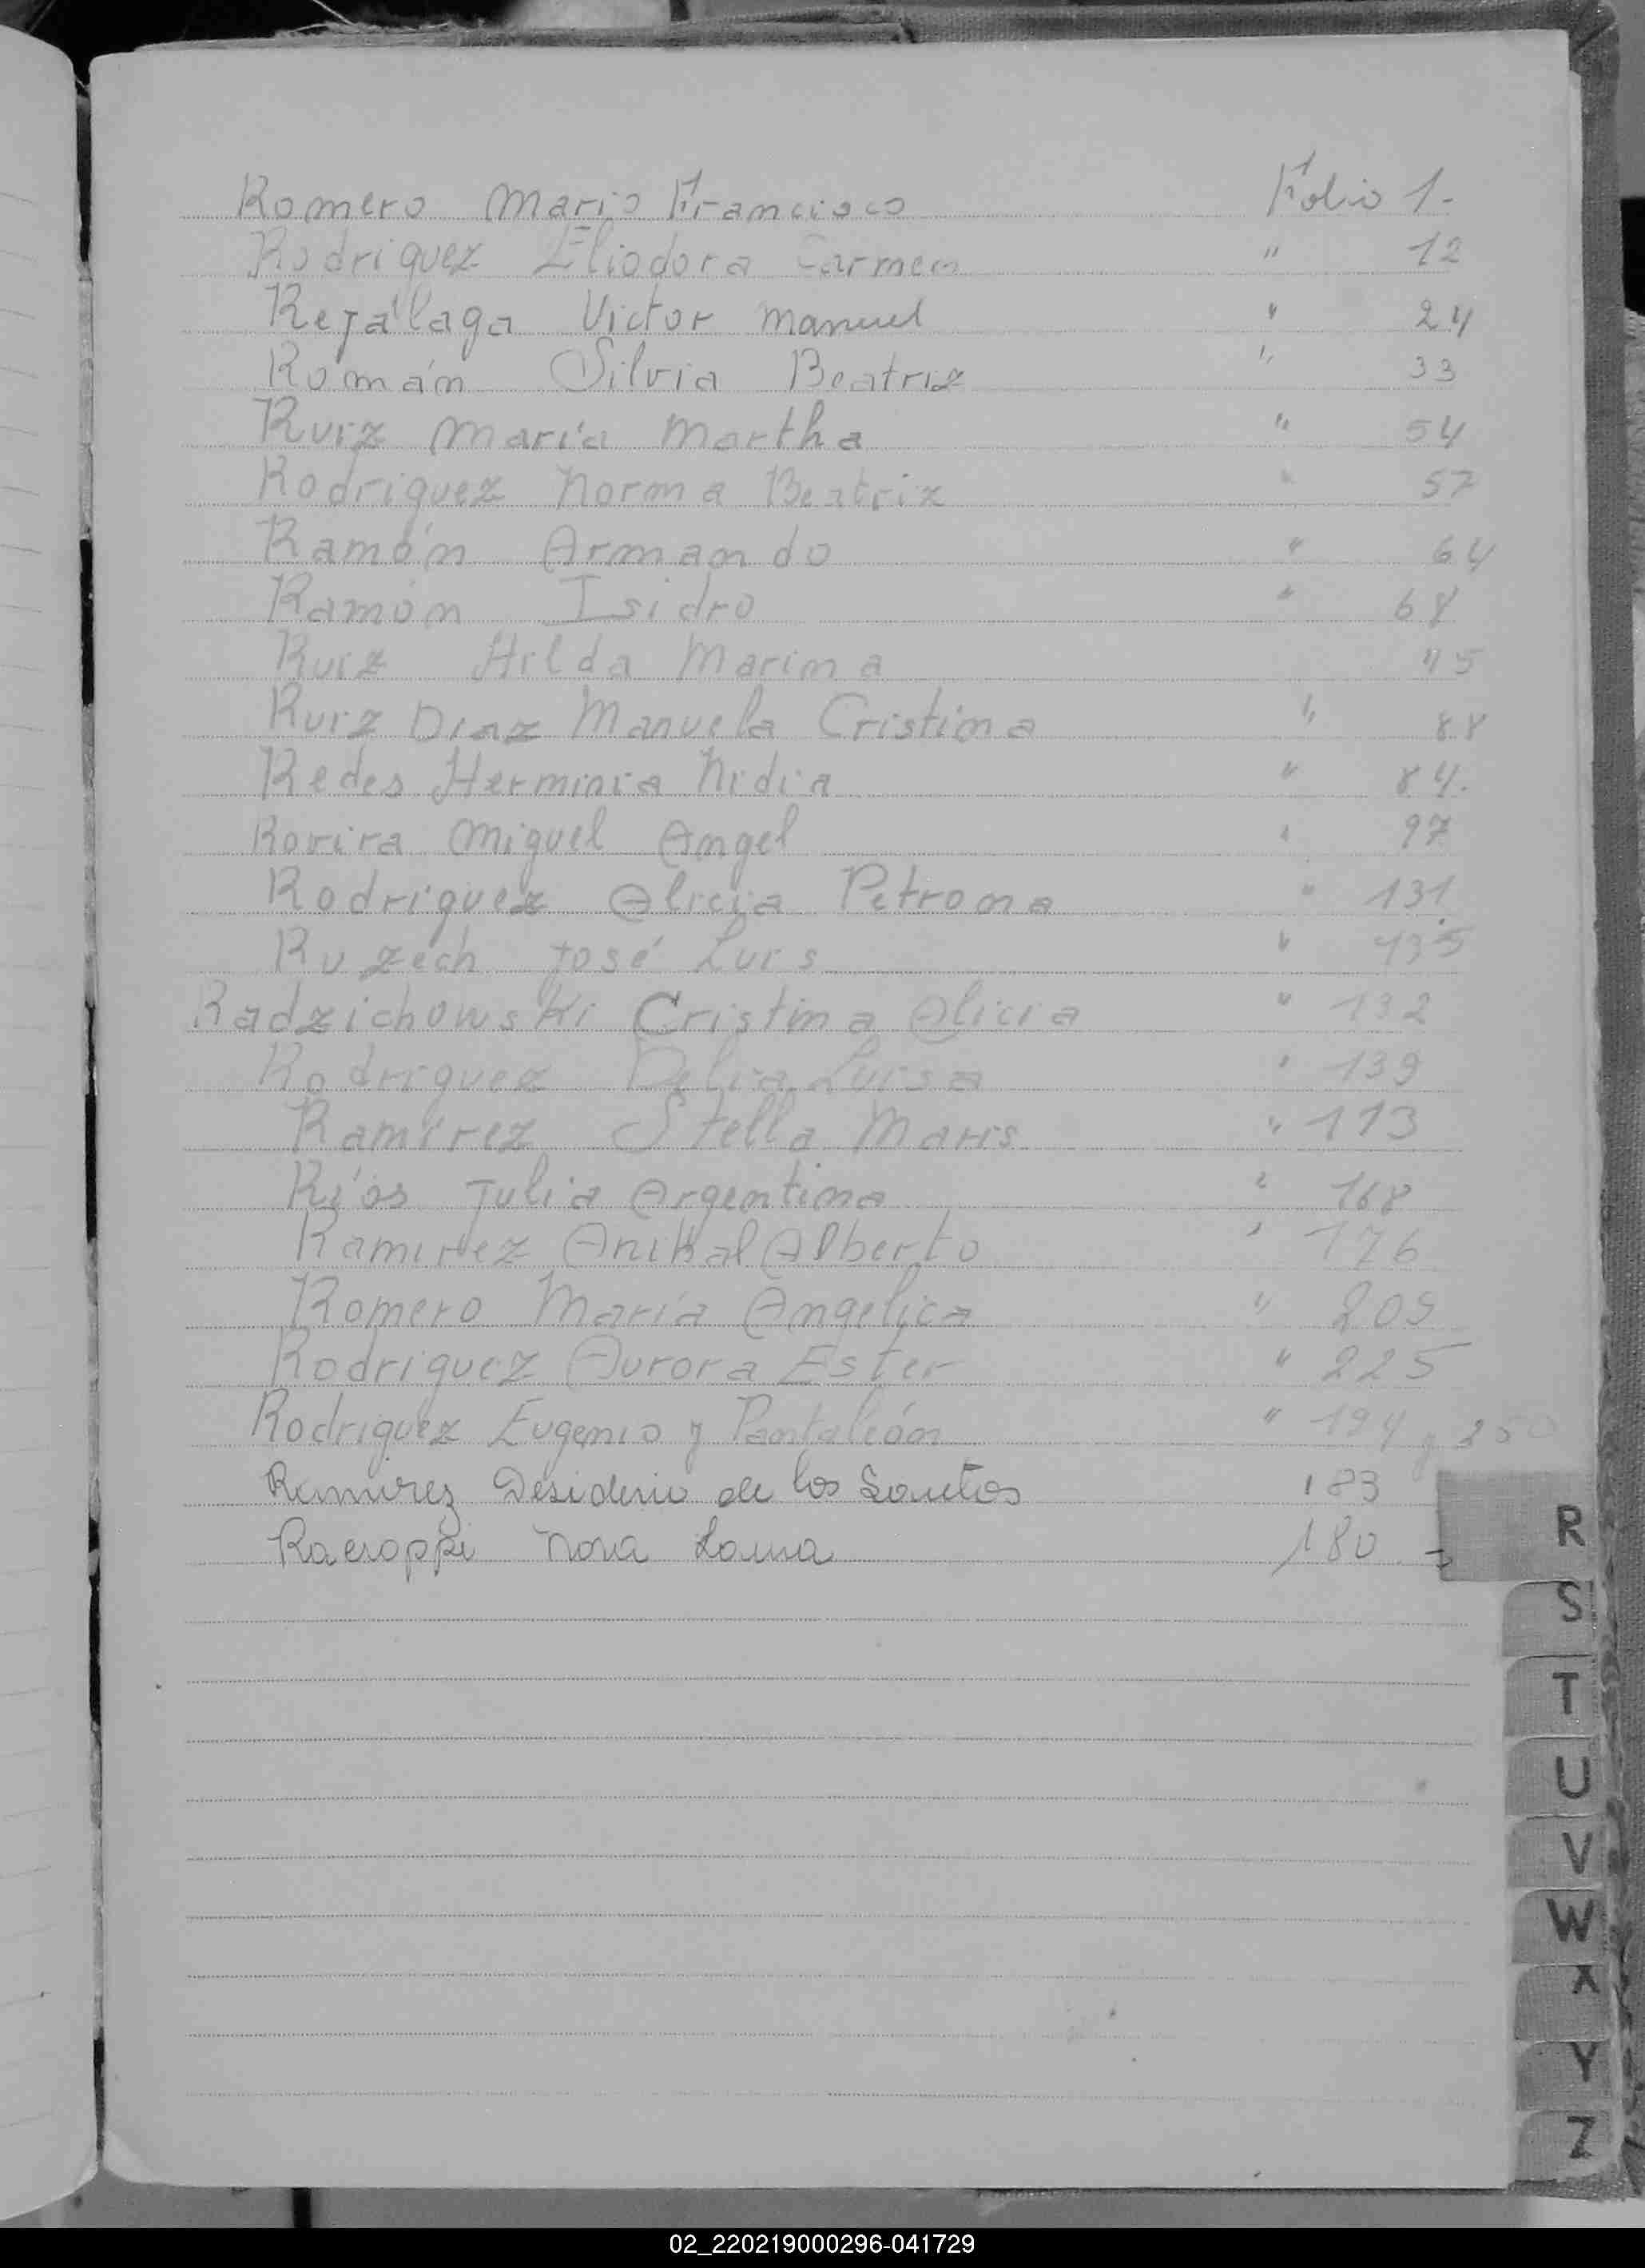 Romero Mario Francisco Folio 1.
Rodriguez Eliodora Carmen " 12
Regálaga Victor Manuel " 24
Román Silvia Beatriz " 33
Ruiz María Martha " 54
Rodriguez Norma Beatriz " 57
Ramón Armando " 64
Ramón Isidro " 68
Ruiz Hilda Marina 75
Ruiz Diaz Manuela Cristina " 88
Redes Herminia Nidia " 84.
Rovira Miguel Angel " 97
Rodriguez Alicia Petrona " 131
Ruzech José Luis " 135
Radzichowski Cristina Alicia " 132
Rodriguez Delia Luisa " 139
Ramírez Stella Maris " 113
Ríos Julia Argentina " 168
Ramirez Anibal Alberto " 176
Romero María Angelica " 209
Rodriguez Aurora Ester " 225
Rodriguez Eugenio y Pantaleón " 194 y 250
Ramirez Desiderio de los Santos 183
Nora Laura 180
R
S
T
U
V
W
X
Y
Z
02_220219000296-041729